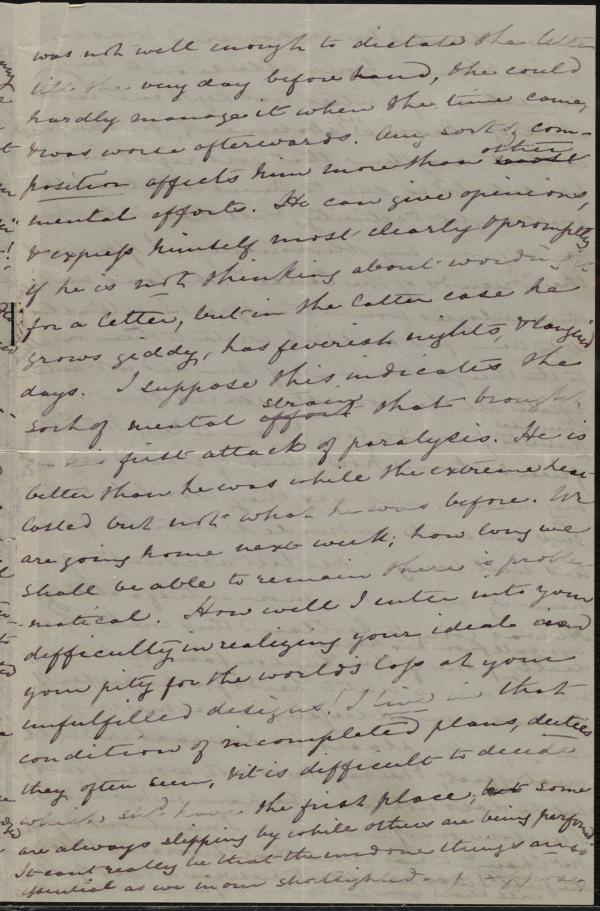 was not well enough to dictate the letter
till the very day before hand, & he could
hardly manage it when the time came,
& was worse afterwards. Any sort of com-
position affects him more than other
mental efforts. He can give opinions,
& express himself most clearly & promptly
if he is not thinking about wording
for a letter, but in the latter case he
grows giddy, has feverish nights, & languid
days. I suppose this indicates the
sort of mental strain that brought
first attack of paralysis. He is
better than he was while the extreme heat
lasted but not what he was before. We
are going home next week; how long we
shall be able to remain there is proble-
matical. How well I enter into your
difficulty in realizing your ideals and
your pity for the world's loss at your
unfulfilled designs! I live in that
condition of incompleted plans, duties
they often seem, & it is difficult to decide
which shd. have the first place, but some
are always slipping by while others are being performed
It cant really be that the undone things are so
essential as we in our shortsighted